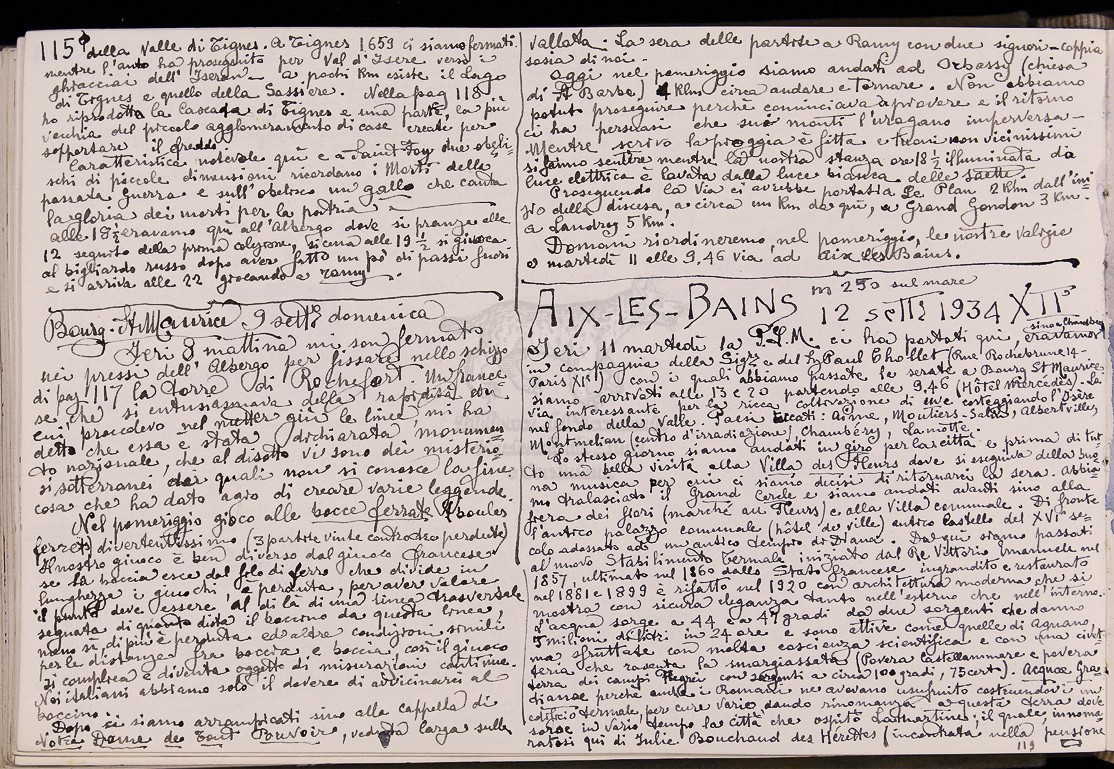 115
della Valle di Tignes. A Tignes 1659 ci siamo fermati
mentre l'auto ha proseguito per Val d'Isere verso i
ghiacciai dell'Iseran — a pochi Km esiste il Lago
di Tignes e quello della Sassiere. Nella pag 118
ho riprodotta la Cascata di Tignes e una parte, la più
vecchia del piccolo agglomeramento di case create per
sopportare il freddo
Caratteristica notevole qui e a Saint Foy due obeli-
schi di piccole dimensioni ricordano i Morti della
passata guerra e sull'obelisco un gallo che canta
la gloria dei morti per la patria
alle 18½ eravamo qui all'Albergo dove si pranza alle
12 seguito della prima colazione, si cena alle 19½ si giuoca
al bigliardo russo dopo aver fatto un po' di passi fuori
e si arriva alle 22 giocando a ramy.
Bourg-St Maurice 9 sett? domenica
Ieri 8 mattina mi son fermato
nei pressi dell'Albergo per fissare nello schizzo
di pag 117 la Torre di Rochefort. Un france-
se, che si entusiasmava della rapidità con
cui procedevo nel metter giù le linee, mi ha
detto che essa è stata dichiarata monumen-
to nazionale, che al disotto vi sono dei misterio-
si sotterranei dei quali non si conosce la fine
cosa che ha dato agio di creare varie leggende.
Nel pomeriggio gioco alle bocce ferrate (boules
ferrets) divertentissimo (3 partite vinte contro tre perdute)
Il nostro giuoco è ben diverso dal giuoco francese
se la boccia esce dal filo di ferro che divide in
lunghezza i giuochi, è perduta, per aver valore
il punto deve essere al di là di una linea trasversale
segnata di quanto dista il boccino da questa linea,
meno sì, di più è perduta ed altre condizioni simili
per le distanze fra boccia e boccia, così il giuoco
si complica e diventa oggetto di misurazioni continue.
Noi italiani abbiamo solo il dovere di avvicinarci al
boccino.
Dopo ci siamo arrampicati sino alla cappella di
Notre Dame de Tout Pouvoir, veduta larga sulla
vallata. La sera delle partite a Ramy con due signori - coppia
sosia di noi.
Oggi nel pomeriggio siamo andati ad Orbassy (chiesa
di St Barbe) 4 Klm circa andare e tornare. Non abbiamo
potut proseguire perchè cominciava a piovere e il ritorno
ci ha persuasi che sui monti l'uragano imperversa-
Mentre scrivo la pioggia è fitta e tuoni non vicinissimi
si fanno sentire mentre la nostra stanza ore 18½ illuminata da
luce elettrica è lavata dalla luce bianca delle saette.
Proseguendo la via ci avrebbe portati a Le Plan 2 Klm dall'ini-
zio della discesa, a circa un Km da qui, a Grand Gondon 3 Km.
a Landrey 5 Km.
Domani riordineremo, nel pomeriggio, le nostre valigie
e martedi 11 alle 9,46 via ad Aix Les Bains.
m 250 sul mare
AIX-LES-BAINS 12 sett? 1934 XII°
Ieri 11 martedì la P.L.M. ci ha portati qui, eravamo sino a Chambery
in compagnia della Sig.ra e del Sg Paul Chollet (Rue Rochebrune 14-
Paris XI°) con i quali abbiamo passate le serate a Bourg St Maurice
siamo arrivati alle 13 e 20 partendo alle 9,46 (Hôtel Mercédès). La
via interessante per la ricca coltivazione di uve costeggiando l'Isère
nel fondo della Valle. Paesi toccati: Aime, Moutiers-Salins, Albertville,
Montmelian (centro d'irradiazione) Chambéry, Lamotte.
Lo stesso giorno siamo andati in giro per la città e prima di tut-
to una bella visita alla Villa des Fleurs dove si eseguiva della buo-
na musica per cui ci siamo decisi di ritornarci la sera. Abbia-
mo tralasciato il Grand Cercle e siamo andati avanti sino alla
fiera dei fiori (marché au Fleurs) e alla Villa comunale. Di fronte
l'antico palazzo comunale (hôtel de ville) antico Castello del XVI se-
colo adossato ad un antico Tempio di Diana. Da qui siamo passati
al nuovo Stabilimento Termale iniziato dal Re Vittorio Emanuele nel
1857, ultimato nel 1860 dallo Stato francese ingrandito e restaurato
nel 1881 e 1899 è rifatto nel 1920 con architettura moderna che si
mostra con sicura eleganza tanto nell'esterno che nell'interno.
L'acqua sorge a 44 e a 47 gradi da due sorgenti che danno
5 milioni di litri in 24 ore e sono attive come quelle di Agnano
ma sfruttate con molta coscienza scientifica e con una civet-
teria che rasenta la smargiassata (Povera Castellammare e povera
terra dei campi Flegrei con sorgenti a circa 100 gradi, 75 cert). Acquae Gra-
dianae perchè anche i Romani ne avevano usufruito costruendovi un
edificio termale, per cure varie, dando rinomanza a questa terra dove
sorse in vario tempo la città che ospitò Lamartine, il quale innamo-
ratosi qui di Julie Bouchaud des Hérettes (incontrata nella pensione
119